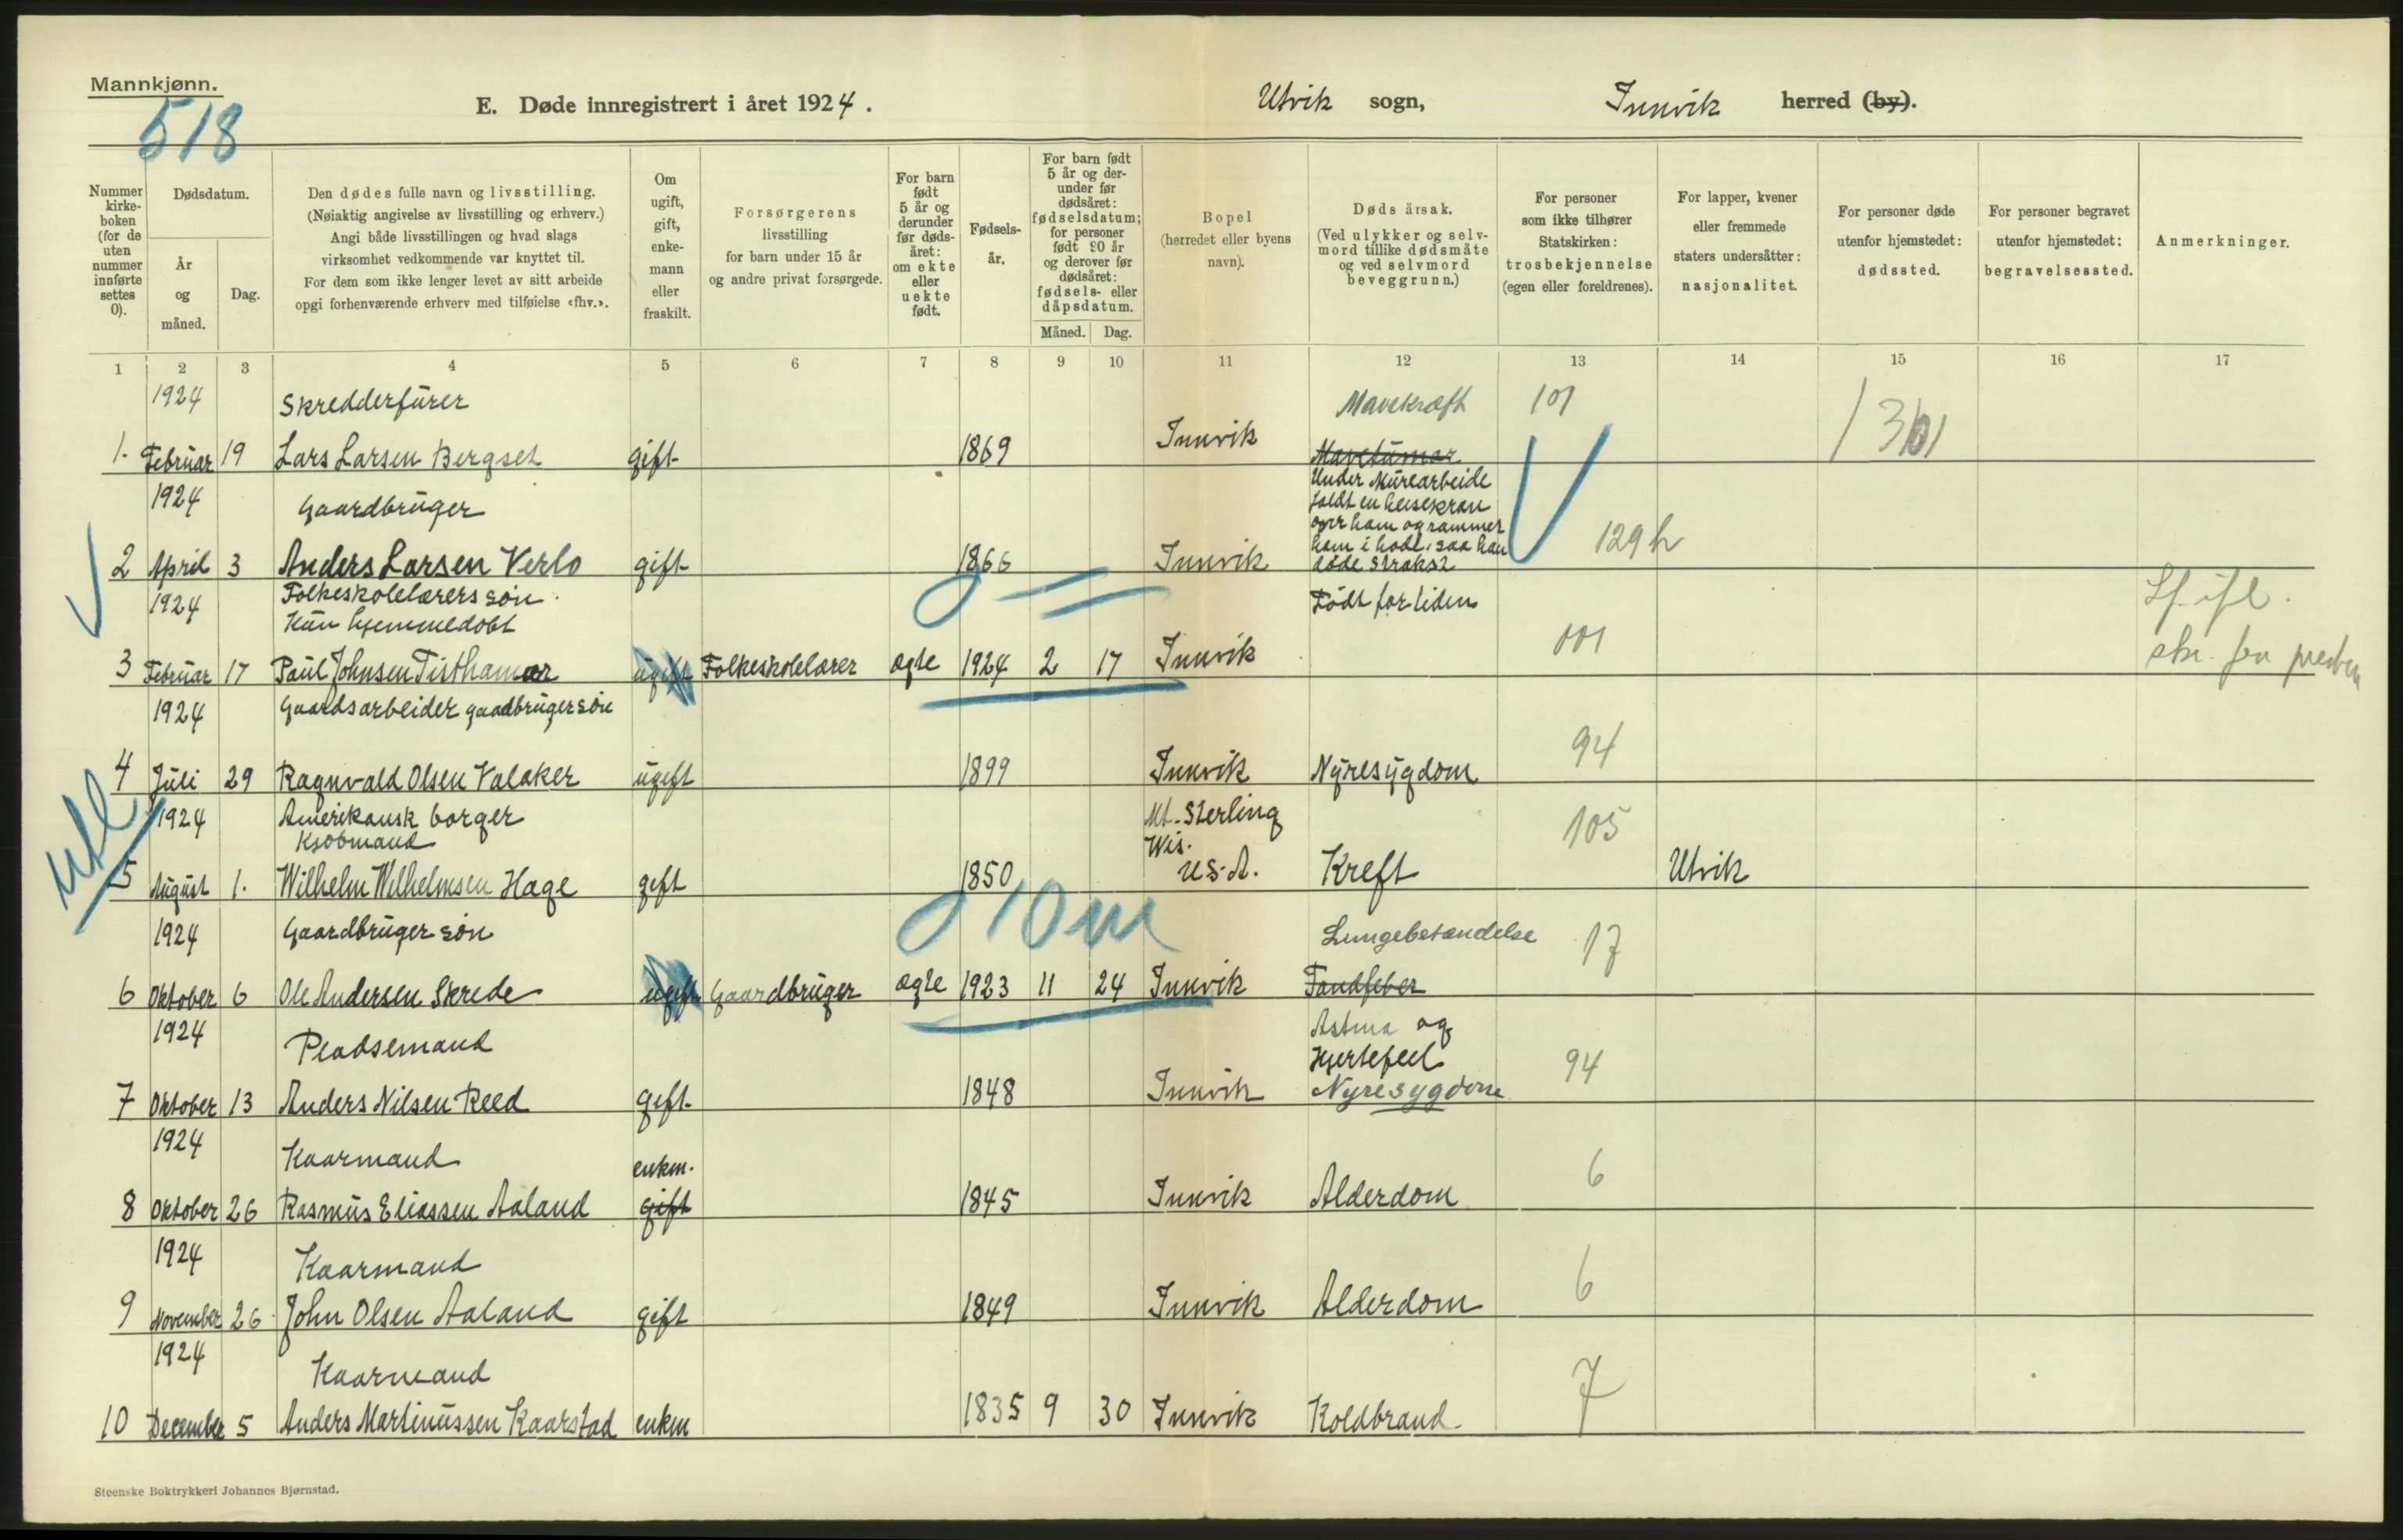 Mannkjønn.
518
E. Døde innregistrert i året 1924.
Utvik sogn, Innvik herred (by).
Nummer kirke-boken (for de uten nummer innførte settes 0).
Dødsdatum.
År og måned.
Dag.
Den dødes fulle navn og livsstilling.
(Nøiaktig angivelse av livsstilling og erhverv.)
Angi både livsstillingen og hvad slags
virksomhet vedkommende var knyttet til.
For dem som ikke lenger levet av sitt arbeide
opgi forhenværende erhverv med tilføielse «fhv.».
Om ugift, gift, enke-mann eller fraskilt.
Forsørgerens
livsstilling
for barn under 15 år
og andre privat forsørgede.
For barn født 5 år og derunder før døds-året: om ekte eller uekte født.
Fødsels-år.
For barn født 5 år og der-under før dødsåret: fødselsdatum; for personer født 90 år og derover før dødsåret: fødsels- eller dåpsdatum.
Måned. Dag.
Bopel
(herredet eller byens
navn).
Dødsårsak.
(Ved ulykker og selv-
mord tillike dødsmåte
og ved selvmord
beveggrunn.)
For personer
som ikke tilhører
Statskirken:
trosbekjennelse
(egen eller foreldrenes).
For lapper, kvener
eller fremmede
staters undersåtter:
nasjonalitet.
For personer døde
utenfor hjemstedet:
dødssted.
For personer begravet
utenfor hjemstedet:
begravelsessted.
Anmerkninger.
1 2 3 4 5 6 7 8 9 10 11 12 13 14 15 16 17
1924 Skredderfurer Mavekræft 101
1. Februar 19 Lars Larsen Bergset gift 1869 Innvik Mavetumar
1924 Gaardbruger Under Murearbeide
faldt en heisekran
over ham og rammet
ham i hodt. saa han
2 April 3 Anders Larsen Verlo gift 1866 Innvik døde strakst 129h
1924 Folkeskolelærers søn. Født for tiden
Kun hjemmedøbt
3 Februar 17 Paul Johnsen Tisthamar ugift Folkeskolelærer ægte 1924 2 17 Innvik 001
1924 Gaardsarbeider gaadbrugersøn
4 Juli 29 Ragnvald Olsen Valaker ugift 1899 Innvik Nyresygdom 94
1924 Amerikansk borger Mt. Sterling
Kjøbmand Wis.
5 August 1. Wilhelm Wilhelmsen Hage gift 1850 U.S.A. Kreft 105 Utvik
utl
10 m
1924 Gaardbruger søn Lungebetændelse 17
6 Oktober 6 Ole Andersen Skrede ugift Gaardbruger ægte 1923 11 24 Innvik Tandfeber
1924 Pladsemand Astma og
Hjertefeil
7 Oktober 13 Anders Nilsen Reed gift 1848 Innvik Nyresygdom 94
1924 Kaarmand enkm.
8 Oktober 26 Rasmus Eliassen Aaland gift 1845 Innvik Alderdom 6
1924 Kaarmand
9 November 26 John Olsen Aaland gift 1849 Innvik Alderdom 6
1924 Kaarmand
10 December 5 Anders Martinussen Kaarstad enkm 1835 9 30 Innvik Koldbrand 7
Steenske Boktrykkeri Johannes Bjørnstad.